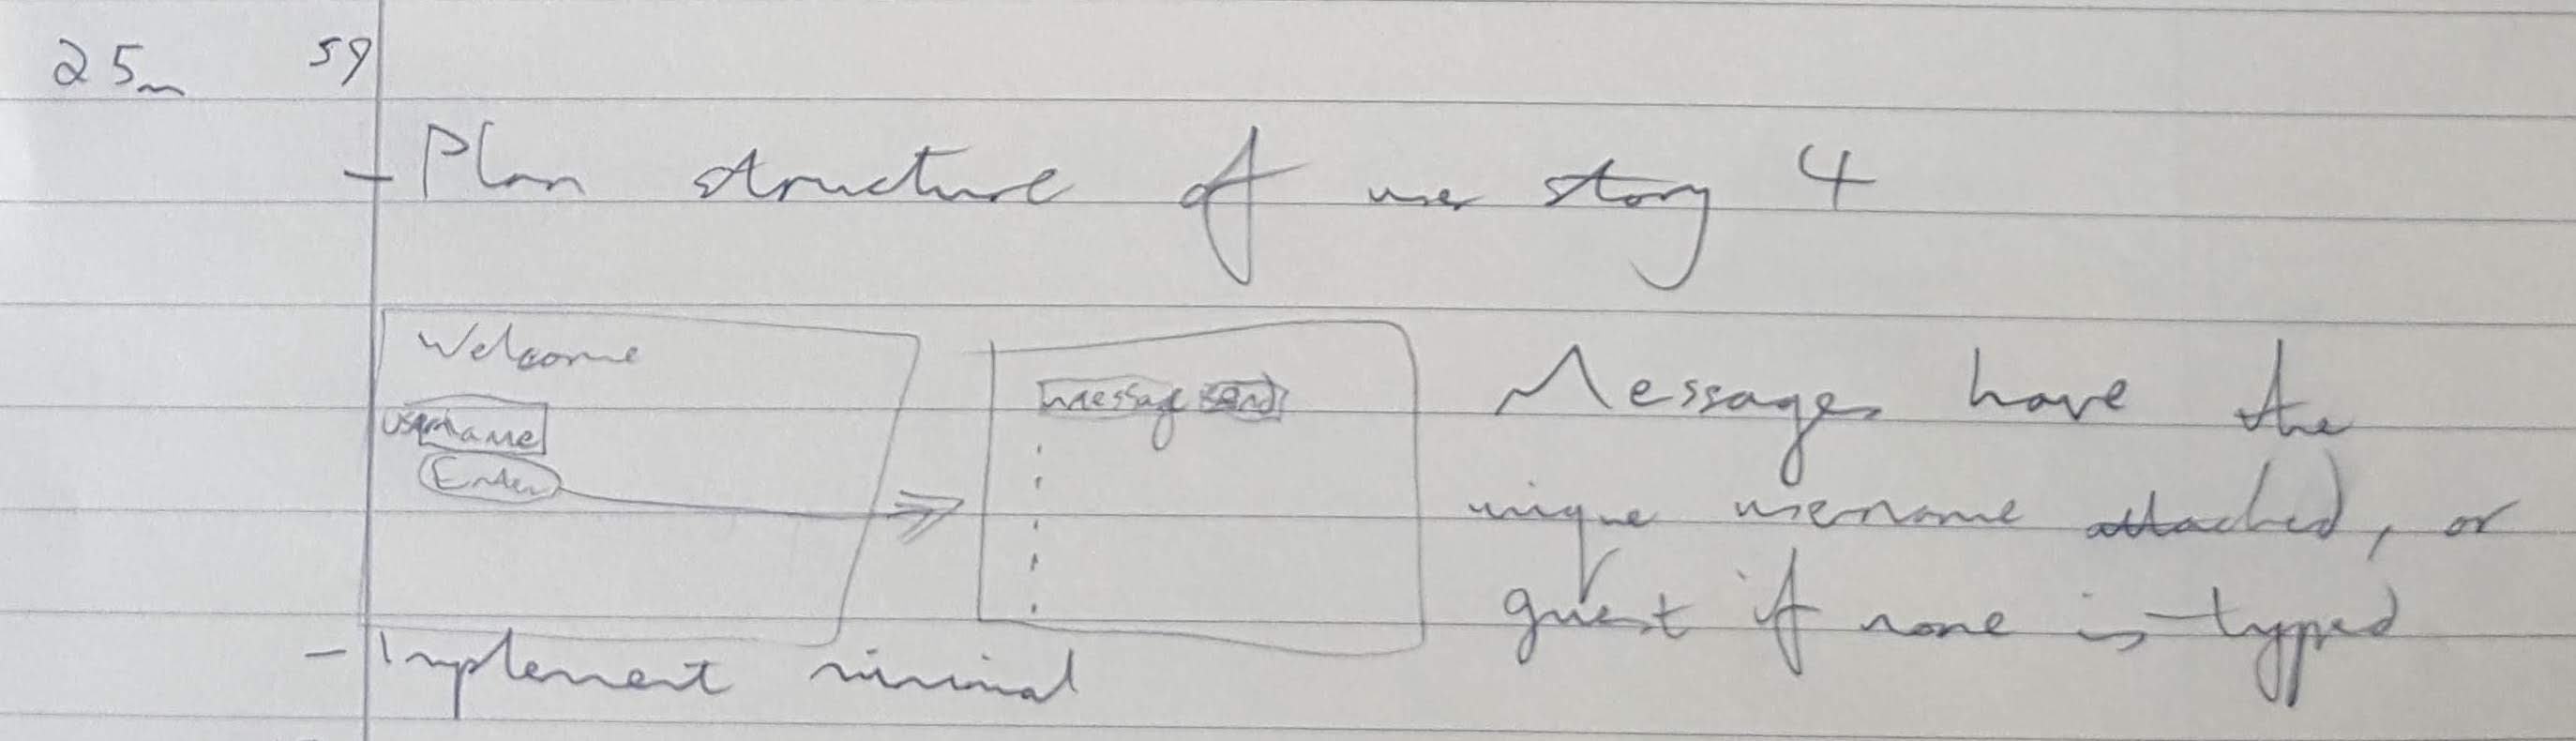 25m 59
- Plan structure of user story 4
Welcome
username
Enter
message send
Messages have the
unique username attached, or
guest if none is typed
- Implement minimal